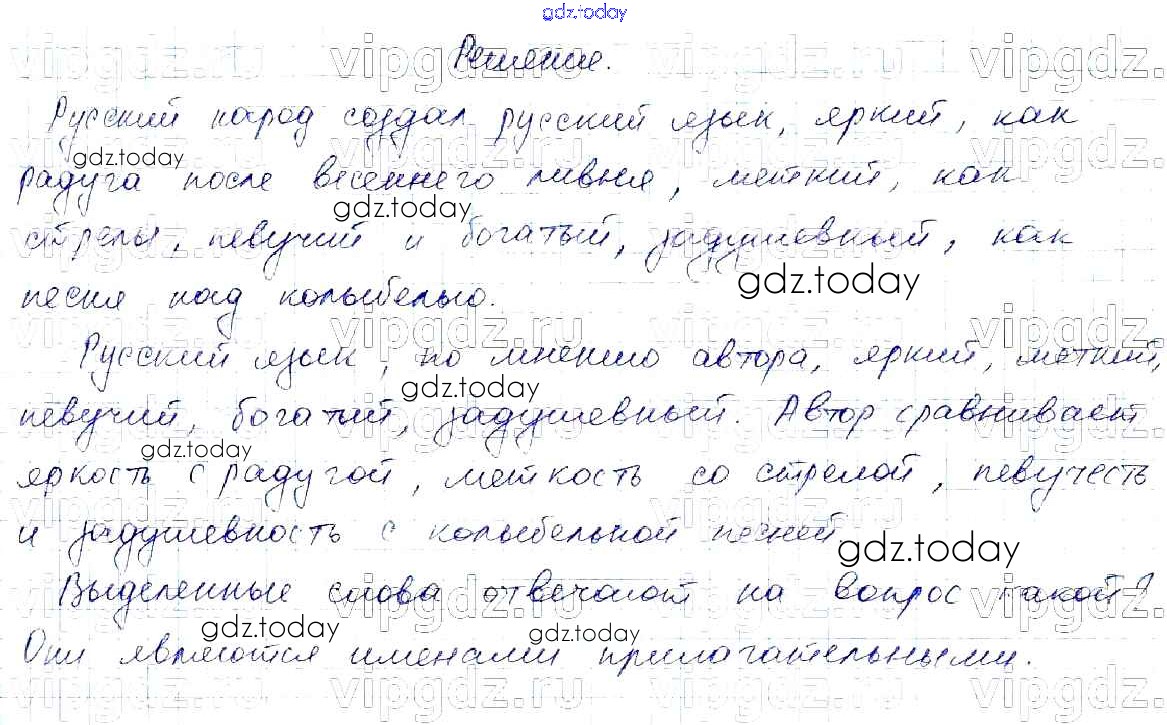 gdz.today
Решение.
Русский народ создал русский язык, яркий, как
gdz.today
радуга после весеннего ливня, меткий, как
gdz.today
стрелы, певучий и богатый, задушевный, как
gdz.today
песня над колыбелью.
Русский язык, по мнению автора, яркий, меткий,
gdz.today
певучий, богатый, задушевный. Автор сравнивает
gdz.today
яркость с радугой, меткость со стрелой, певучесть
и задушевность с колыбельной песней.
gdz.today
Выделенные слова отвечают на вопрос какой?
gdz.today
gdz.today
Они являются именами прилагательными.